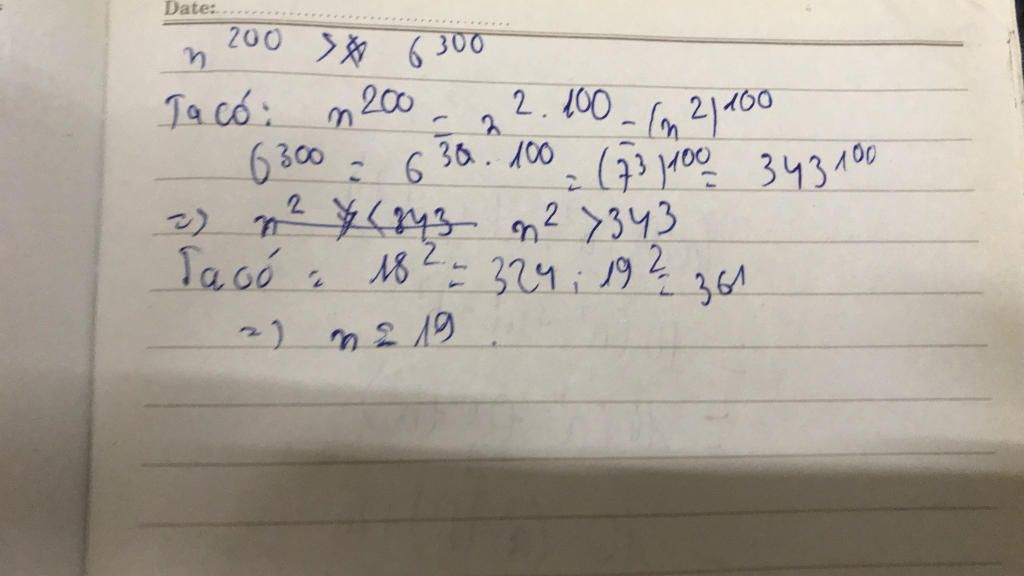 Date:
n^200 > 6^300
Ta có: n^200 = n^2.100 = (n^2)^100
6^300 = 6^3.100 = (7^3)^100 = 343^100
=) n^2 > 343
Ta có = 18^2 = 324 ; 19^2 = 361
=) n = 19 .